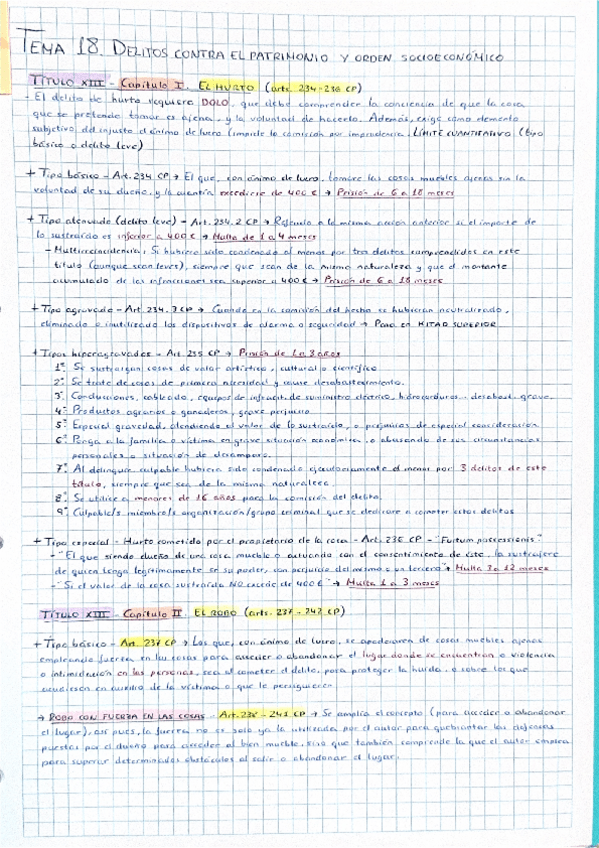 TEMA 18. DELITOS CONTRA EL PATRIMONIO Y ORDEN SOCIOECONÓMICO
TÍTULO XIII - Capítulo I. EL HURTO (arts. 234-236 CP)
- El delito de hurto requiere DOLO, que debe comprender la conciencia de que la cosa
que se pretende tomar es ajena, y la voluntad de hacerlo. Además, exige como elemento
subjetivo del injusto el ánimo de lucro (impide la comisión por imprudencia. LÍMITE CUANTITATIVO (tipo
básico o delito leve)
+ Tipo básico - Art. 234 CP → El que, con ánimo de lucro, tomare las cosas muebles ajenas sin la
voluntad de su dueño, y la cuantía excediere de 400 € → Prisión de 6 a 18 meses
+ Tipo atenuado (delito leve) - Art. 234.2 CP → Referido a la misma acción anterior si el importe de
lo sustraído es inferior a 400 € → Multa de 1 a 4 meses
- Multirreincidencia: Si hubiere sido condenado al menos por tres delitos comprendidos en este
título (aunque sean leves), siempre que sean de la misma naturaleza y que el montante
acumulado de las infracciones sea superior a 400 € → Prisión de 6 a 18 meses
+ Tipo agravado - Art. 234.3 CP → Cuando en la comisión del hecho se hubieran neutralizado,
eliminado o inutilizado los dispositivos de alarma o seguridad → Pena en MITAD SUPERIOR
+ Tipos hiperagravados - Art. 235 CP → Prisión de 1 a 3 años
1º. Se sustraigan cosas de valor artístico, cultural o científico
2º. Se trate de cosas de primera necesidad y cause desabastecimiento.
3º. Conducciones, cableado, equipos de infraestr. de suministro eléctrico, hidrocarburos.. desabast. grave.
4º. Productos agrarios o ganaderos, grave perjuicio
5º. Especial gravedad, atendiendo al valor de lo sustraído, o perjuicios de especial consideración
6º. Ponga a la familia o víctima en grave situación económica, o abusando de sus circunstancias
personales o situación de desamparo.
7º. Al delinquir culpable hubiera sido condenado ejecutoriamente al menos por 3 delitos de este
título, siempre que sea de la misma naturaleza.
8º. Se utilice a menores de 16 años para la comisión del delito.
9º. Culpable/s miembro/s organización/grupo criminal que se dedicare a cometer estos delitos
+ Tipo especial - Hurto cometido por el propietario de la cosa - Art. 236 CP - "Furtum possessionis"
- "El que siendo dueño de una cosa mueble o actuando con el consentimiento de éste, la sustrajere
de quien tenga legítimamente en su poder, con perjuicio del mismo o un tercero" → Multa 3 a 12 meses
- "Si el valor de la cosa sustraída NO excede de 400 €" → Multa 1 a 3 meses
TÍTULO XIII - Capítulo II. EL ROBO (arts. 237 - 242 CP)
+ Tipo básico - Art. 237 CP → Los que, con ánimo de lucro, se apoderaren de cosas muebles ajenas
empleando fuerza en las cosas para acceder o abandonar el lugar donde se encuentran o violencia
o intimidación en las personas, sea al cometer el delito, para proteger la huida, o sobre los que
acudiesen en auxilio de la víctima o que le persiguieren
→ ROBO CON FUERZA EN LAS COSAS - Art. 238 - 241 CP → Se amplía el concepto (para acceder o abandonar
el lugar), así pues, la fuerza no es solo ya la utilizada por el autor para quebrantar las defensas
puestas por el dueño para acceder al bien mueble, sino que también comprende la que el autor emplea
para superar determinados obstáculos al salir o abandonar el lugar.